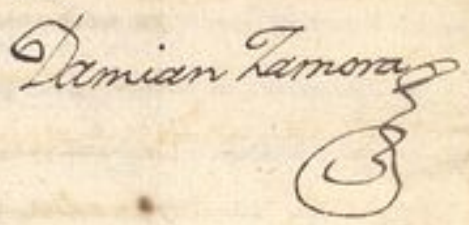 Damian Zamora